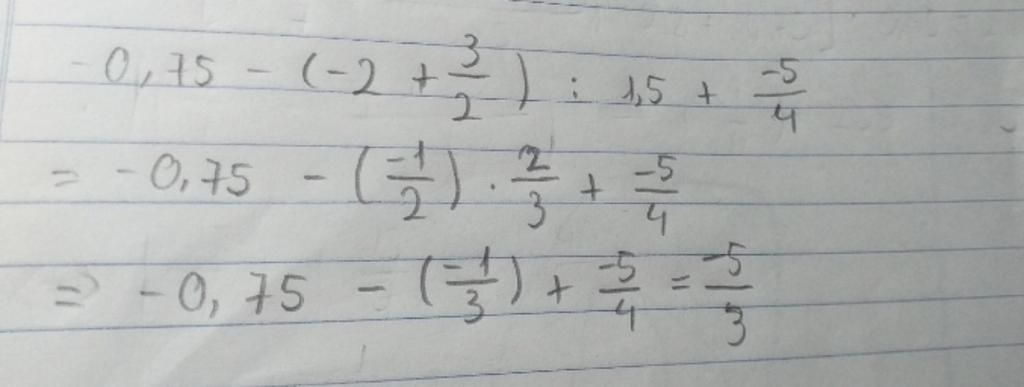 -0,75 - (-2 + 3/2) : 1,5 + -5/4
= -0,75 - (-1/2) . 2/3 + -5/4
=> -0,75 - (-1/3) + -5/4 = -5/3